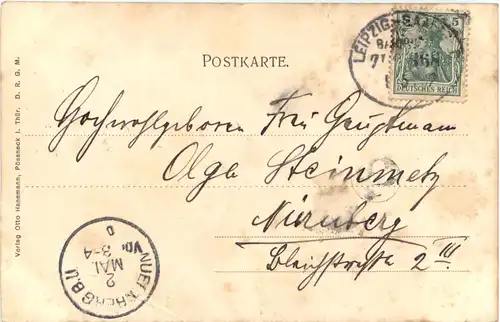 POSTKARTE.
LEIPZIG-SA
5
BAHNP
368
DEUTSCHES REICH
Hochwohlgeboren Frau Hauptmann
Olga Steinmetz
Nürnberg
Bleichstraße 2 III
NUERNBERG B.II
2
MAI
3-4
Verlag Otto Hanemann, Pössneck i. Thür. D. R. G. M.